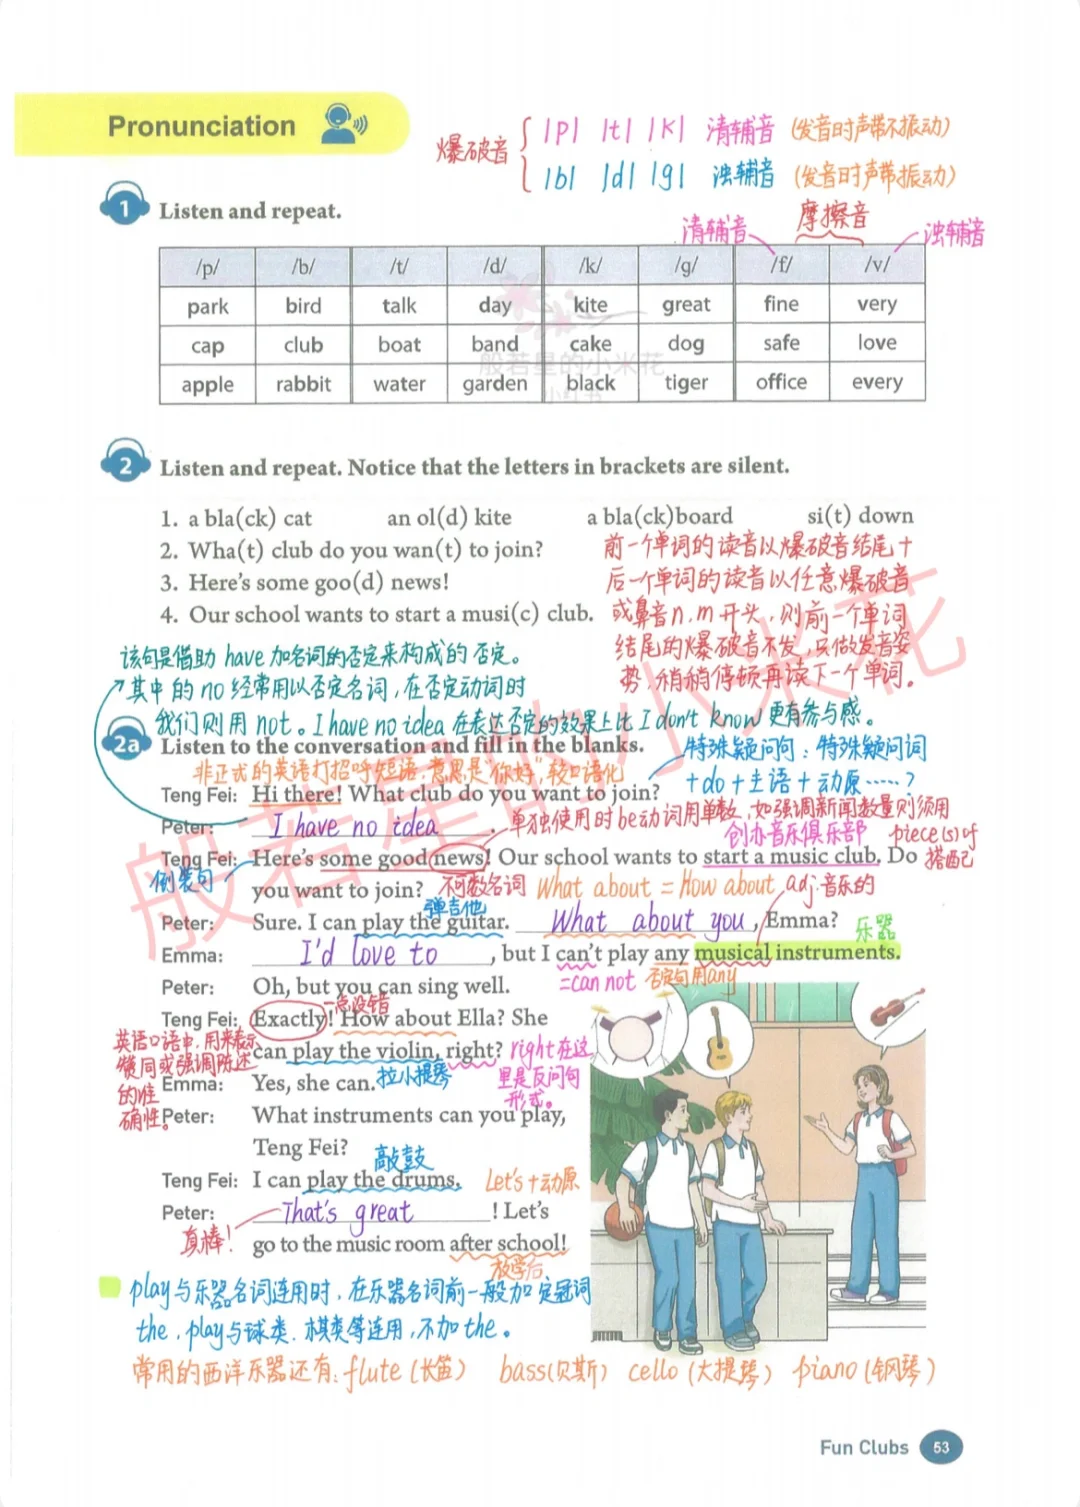 Pronunciation
爆破音
/p/ /t/ /k/ 清辅音 (发音时声带不振动)
/b/ /d/ /g/ 浊辅音 (发音时声带振动)
1 Listen and repeat.
清辅音 摩擦音 浊辅音
/p/ /b/ /t/ /d/ /k/ /g/ /f/ /v/
park bird talk day kite great fine very
cap club boat band cake dog safe love
apple rabbit water garden black tiger office every
般若星的小米花
小红书
2 Listen and repeat. Notice that the letters in brackets are silent.
1. a bla(ck) cat an ol(d) kite a bla(ck)board si(t) down
2. Wha(t) club do you wan(t) to join?
3. Here's some goo(d) news!
4. Our school wants to start a musi(c) club.
前一个单词的读音以爆破音结尾+
后一个单词的读音以任意爆破音
或鼻音n,m开头,则前一个单词
结尾的爆破音不发,只做发音姿
势,稍稍停顿再读下一个单词。
该句是借助 have 加名词的否定来构成的否定。
其中的 no 经常用以否定名词,在否定动词时
我们则用 not。I have no idea 在表达否定的效果上比 I don't know 更有参与感。
2a Listen to the conversation and fill in the blanks.
特殊疑问句:特殊疑问词
+do+主语+动原……?
非正式的英语打招呼短语,意思是"你好",较口语化
Teng Fei: Hi there! What club do you want to join?
Peter: I have no idea.
单独使用时be动词用单数,如强调新闻数量则须用
piece(s) of
搭配
创办音乐俱乐部
Teng Fei: Here's some good news! Our school wants to start a music club. Do
倒装句
you want to join?
不可数名词 What about = How about adj.音乐的
弹吉他
Peter: Sure. I can play the guitar. What about you, Emma?
乐器
Emma: I'd love to, but I can't play any musical instruments.
=can not 否定句用any
Peter: Oh, but you can sing well.
一点没错
Teng Fei: Exactly! How about Ella? She
can play the violin, right?
英语口语中,用来表示
赞同或强调陈述
的准
确性。
right在这
里是反问句
形式。
拉小提琴
Emma: Yes, she can.
Peter: What instruments can you play,
Teng Fei?
敲鼓
Teng Fei: I can play the drums.
Let's+动原
Peter: That's great! Let's
真棒!
go to the music room after school!
放学后
play与乐器名词连用时,在乐器名词前一般加定冠词
the,play与球类、棋类等连用,不加the。
常用的西洋乐器还有:flute(长笛) bass(贝斯) cello(大提琴) piano(钢琴)
般若星的小米花
Fun Clubs 53